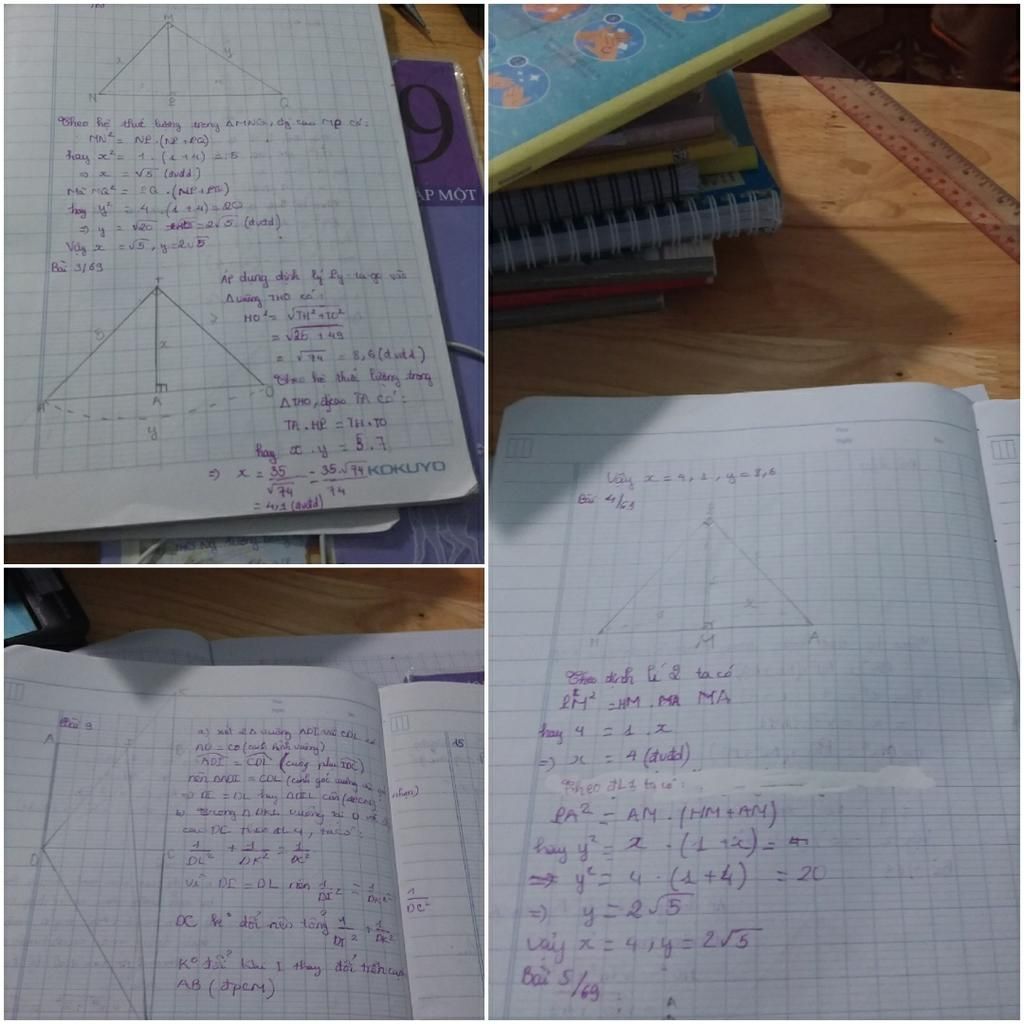 M
x
y
N
P
Q
Theo hệ thức lượng trong ΔMNQ, đg cao MP có:
MN² = NP.(NP+PQ)
hay x² = 1.(1+4) = 5
⇒ x = √5 (đvđd)
Mà MQ² = PQ.(NP+PQ)
hay y² = 4.(1+4) = 20
⇒ y = √20 = 2√5 (đvđd)
Vậy x = √5, y = 2√5
Bài 3/69
T
5
7
x
H
A
O
y
Áp dụng định lý Py-ta-go vào
Δ vuông THO có:
HO² = √TH²+TO²
= √25 + 49
= √74 = 8,6 (đvđd)
Theo hệ thức lượng trong
ΔTHO, đgcao TA có:
TA.HO = TH.TO
hay x.y = 5.7
⇒ x = 35/√74 = 35.√74/74
= 4,1 (đvđd)
KOKUYO
9
ẬP MỘT
Vậy x = 4,1, y = 8,6
Bài 4/69
x
H
M
A
Theo định lí 2 ta có
PM² = HM. MA
hay 4 = 1.x
⇒ x = 4 (đvđd)
Theo ĐL1 ta có:
PA² = AM.(HM+AM)
hay y² = x.(1+x) =
⇒ y² = 4.(1+4) = 20
⇒ y = 2√5
Vậy x = 4, y = 2√5
Bài 5/69
A
Bài 9
A
I
B
D
L
a) xét 2Δ vuông ADI và CDL có
AD = CD (cạnh hình vuông)
ADI = CDL (cùng phụ IDC)
nên ΔADI = CDL (cạnh góc vuông và góc nhọn)
⇒ DI = DL hay ΔDIL cân (đpcm)
b) Trong ΔDKL vuông tại D và đg
cao DC theo ĐL4, ta có:
1/DL² + 1/DK² = 1/DC²
Vì DI = DL nên 1/DI² + 1/DK² = 1/DC²
DC k° đổi nên tổng 1/DI² + 1/DK²
K° đổi khi I thay đổi trên cạnh
AB (đpcm)
15